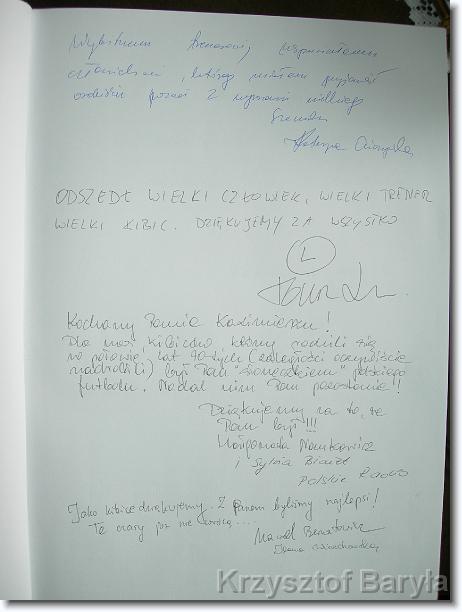 Wybitnemu trenerowi, wspaniałemu
człowiekowi, którego miałam przyjemność
osobiście poznać z wyrazami wielkiego
Szacunku
Katarzyna
ODSZEDŁ WIELKI CZŁOWIEK, WIELKI TRENER
WIELKI KIBIC. DZIĘKUJEMY ZA WSZYSTKO
L
Kochany Panie Kazimierzu!
Dla nas, kibiców, którzy rodzili się
na połowie lat 70-tych (zaległości oczywiście
nadrobili) był Pan "słoneczkiem" polskiego
futbolu. Nadal nim Pan pozostanie!!
Dziękujemy za to, że
Pan był!!!
Małgorzata
i Sylvia
Polskie Radio
Jako kibice dziękujemy. Z Panem byliśmy najlepsi!
Te czasy już nie wrócą....
Krzysztof Baryła